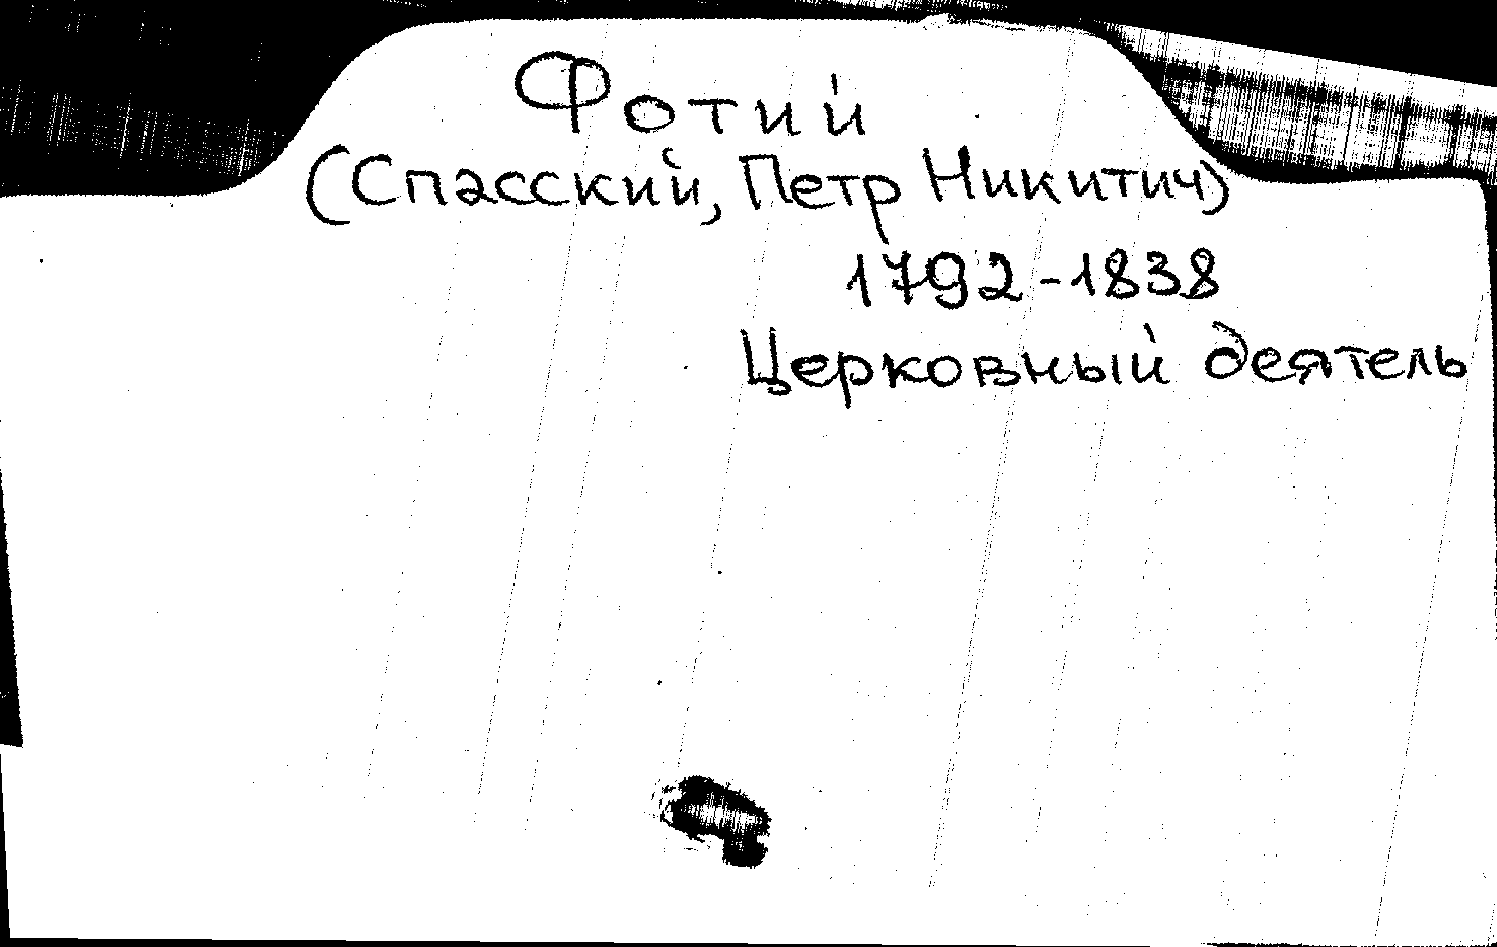 Фотий
(Спасский, Петр Никитич)
1792-1838
Церковный деятель